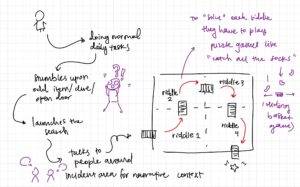 doing normal
daily tasks
stumbles upon
odd item/clue/
open door
launches the
search
talks to
people around
incident area for narrative context
To "solve" each riddle
they have to play
puzzle games like
"catch all the socks"
riddle
2
riddle 3
riddle 1
riddle
basket
game)